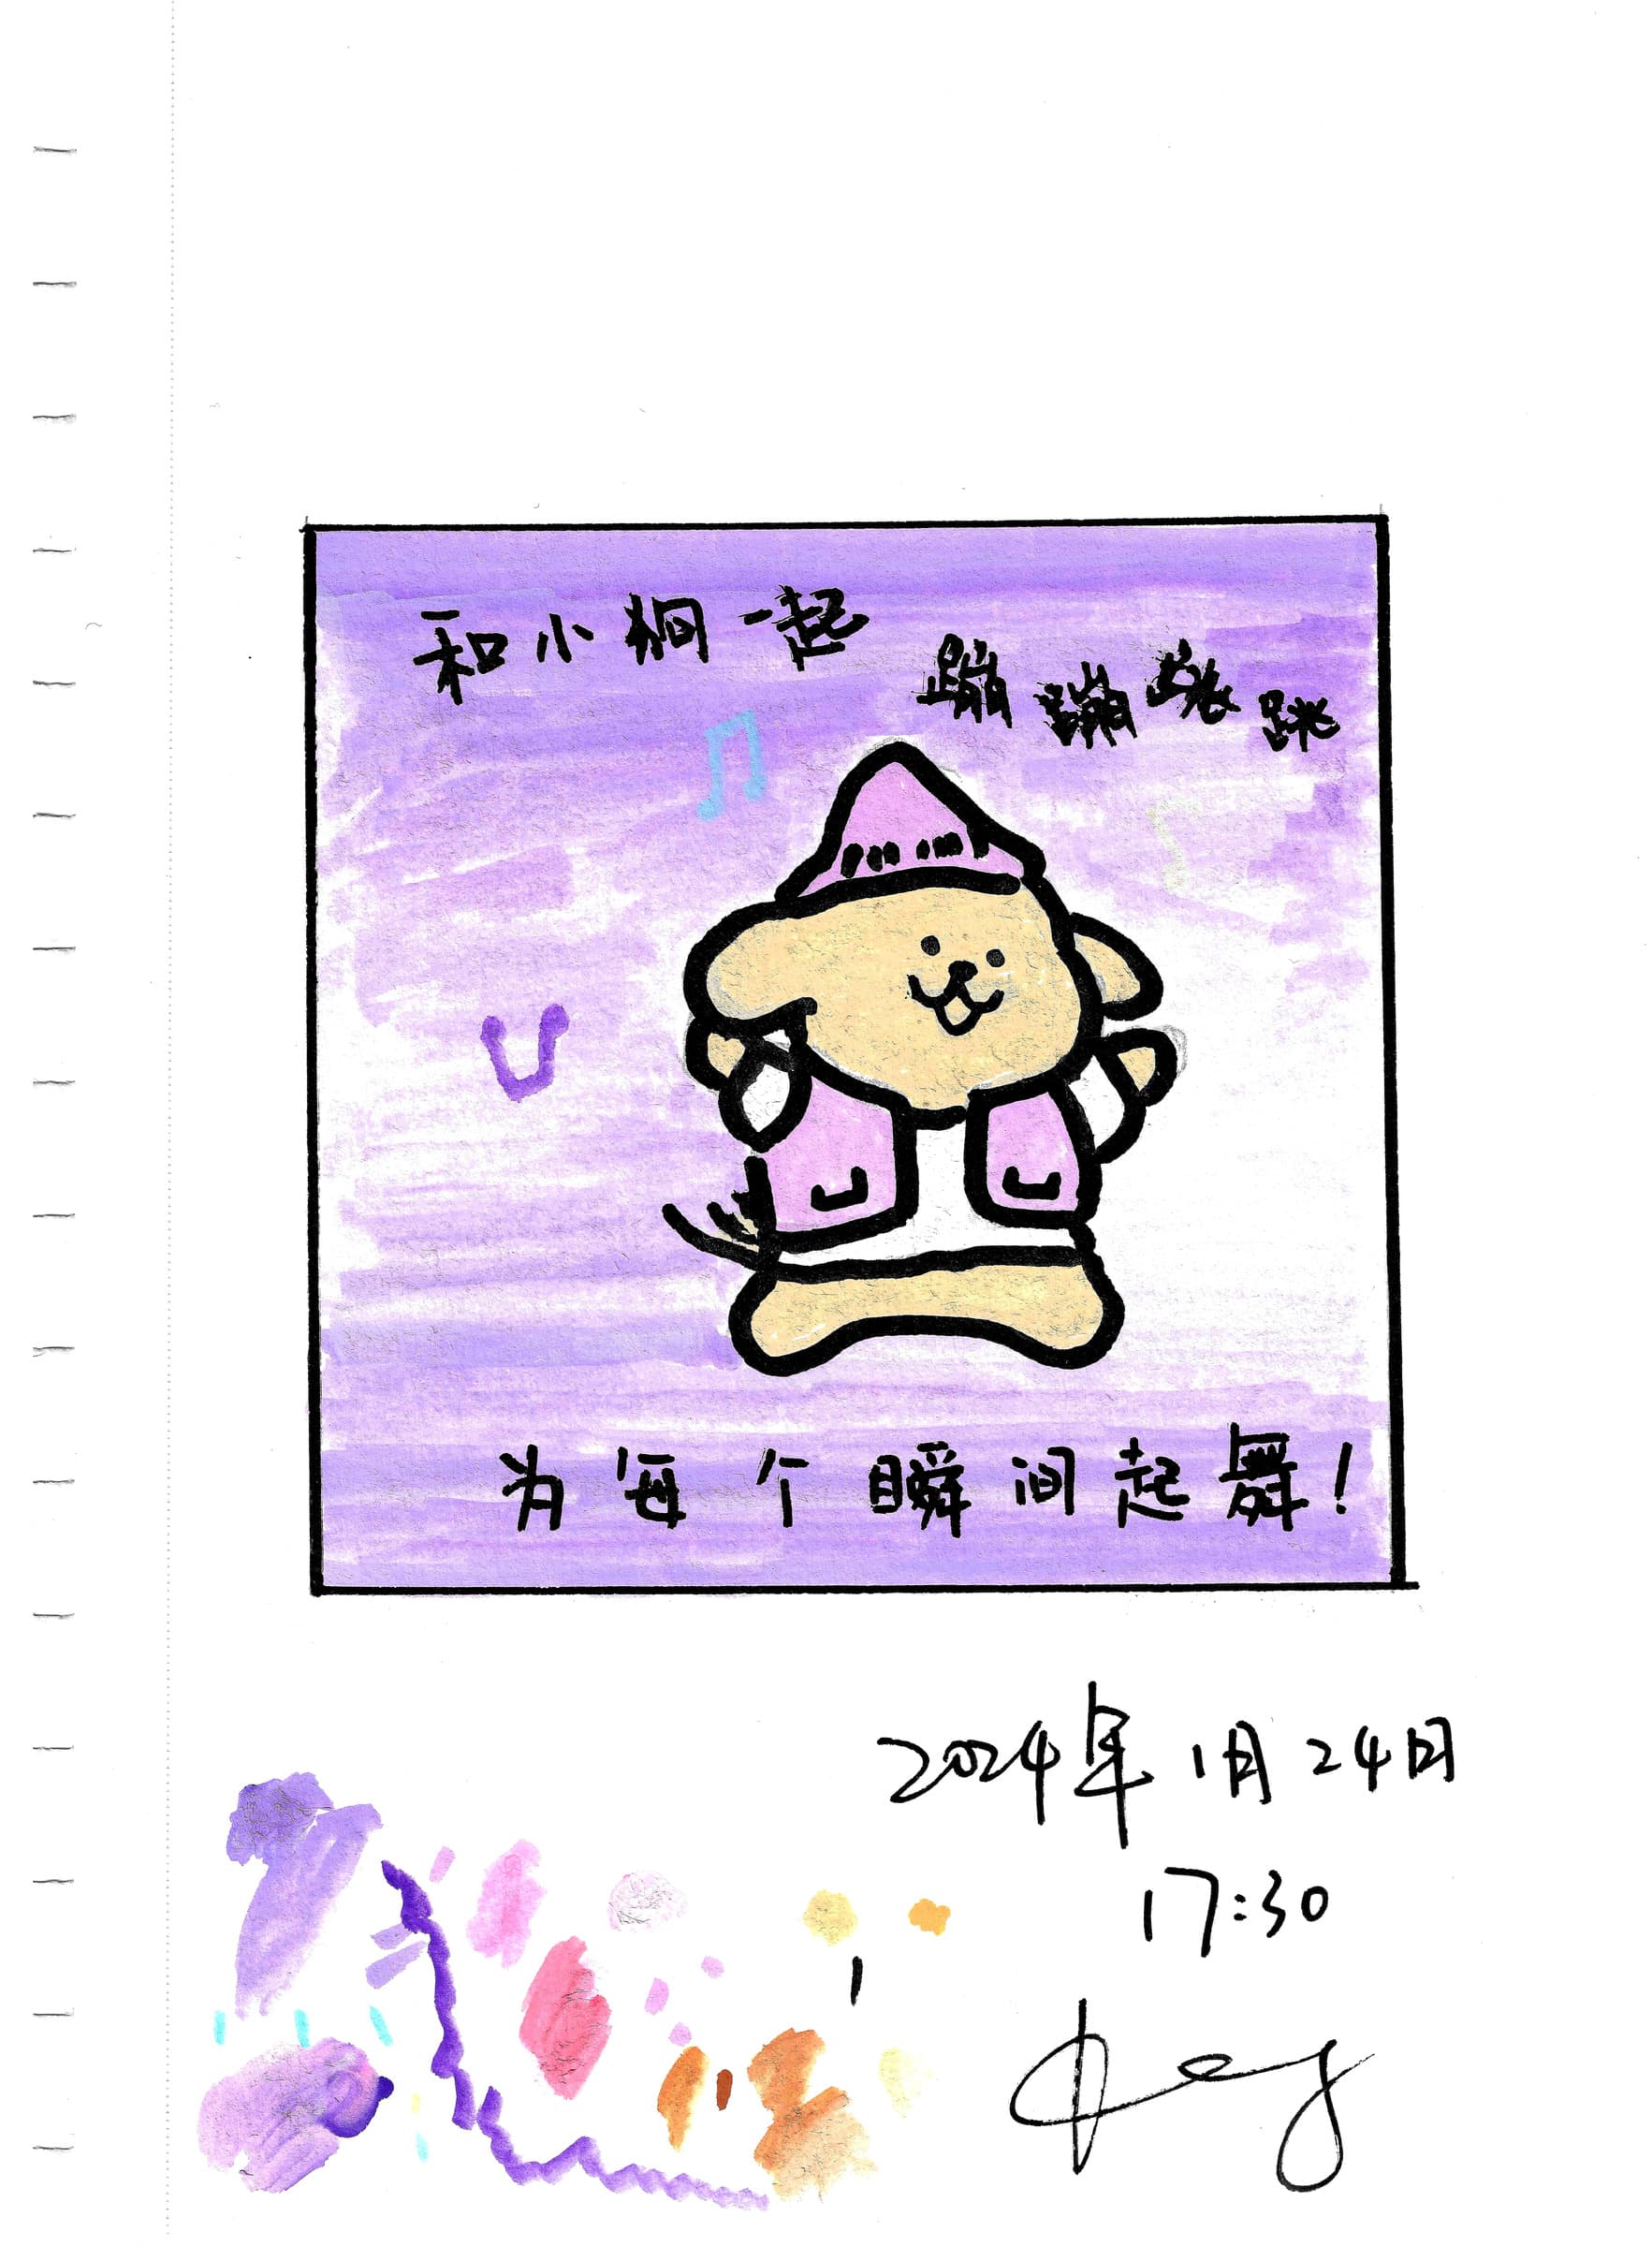 和小狗一起
蹦蹦跳跳
为每个瞬间起舞！
2024年1月24日
17:30